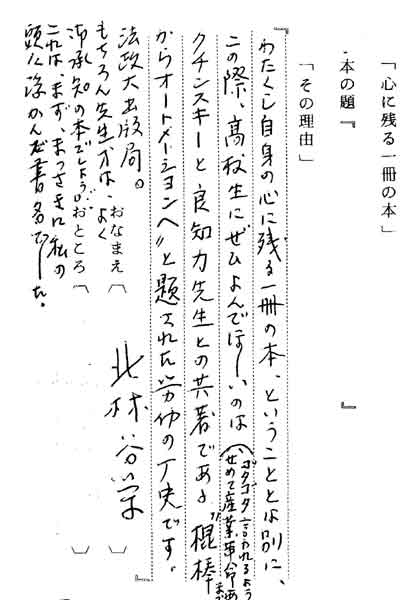 「心に残る一冊の本」
・本の題『　　　　　』
「その理由」
『わたくし自身の心に残る一冊の本、ということとは別に、
この際、高校生にぜひよんでほしいのは(ゴタゴタ言われるよう
せめて産業革命あ
クチンスキーと良知力先生との共著である〝棍棒
からオートメーションへ〟と題された労作の一丁夫です。
法政大出版局。
もちろん先生方は、よく
御承知の本でしょうが、
これは、まず、まっさきに私の
頭に浮かんだ書名でした。
おなまえ〔北林谷栄〕
おところ〔　　　〕』